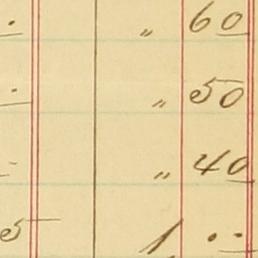 " 60
" 50
" 40
5 1 ..